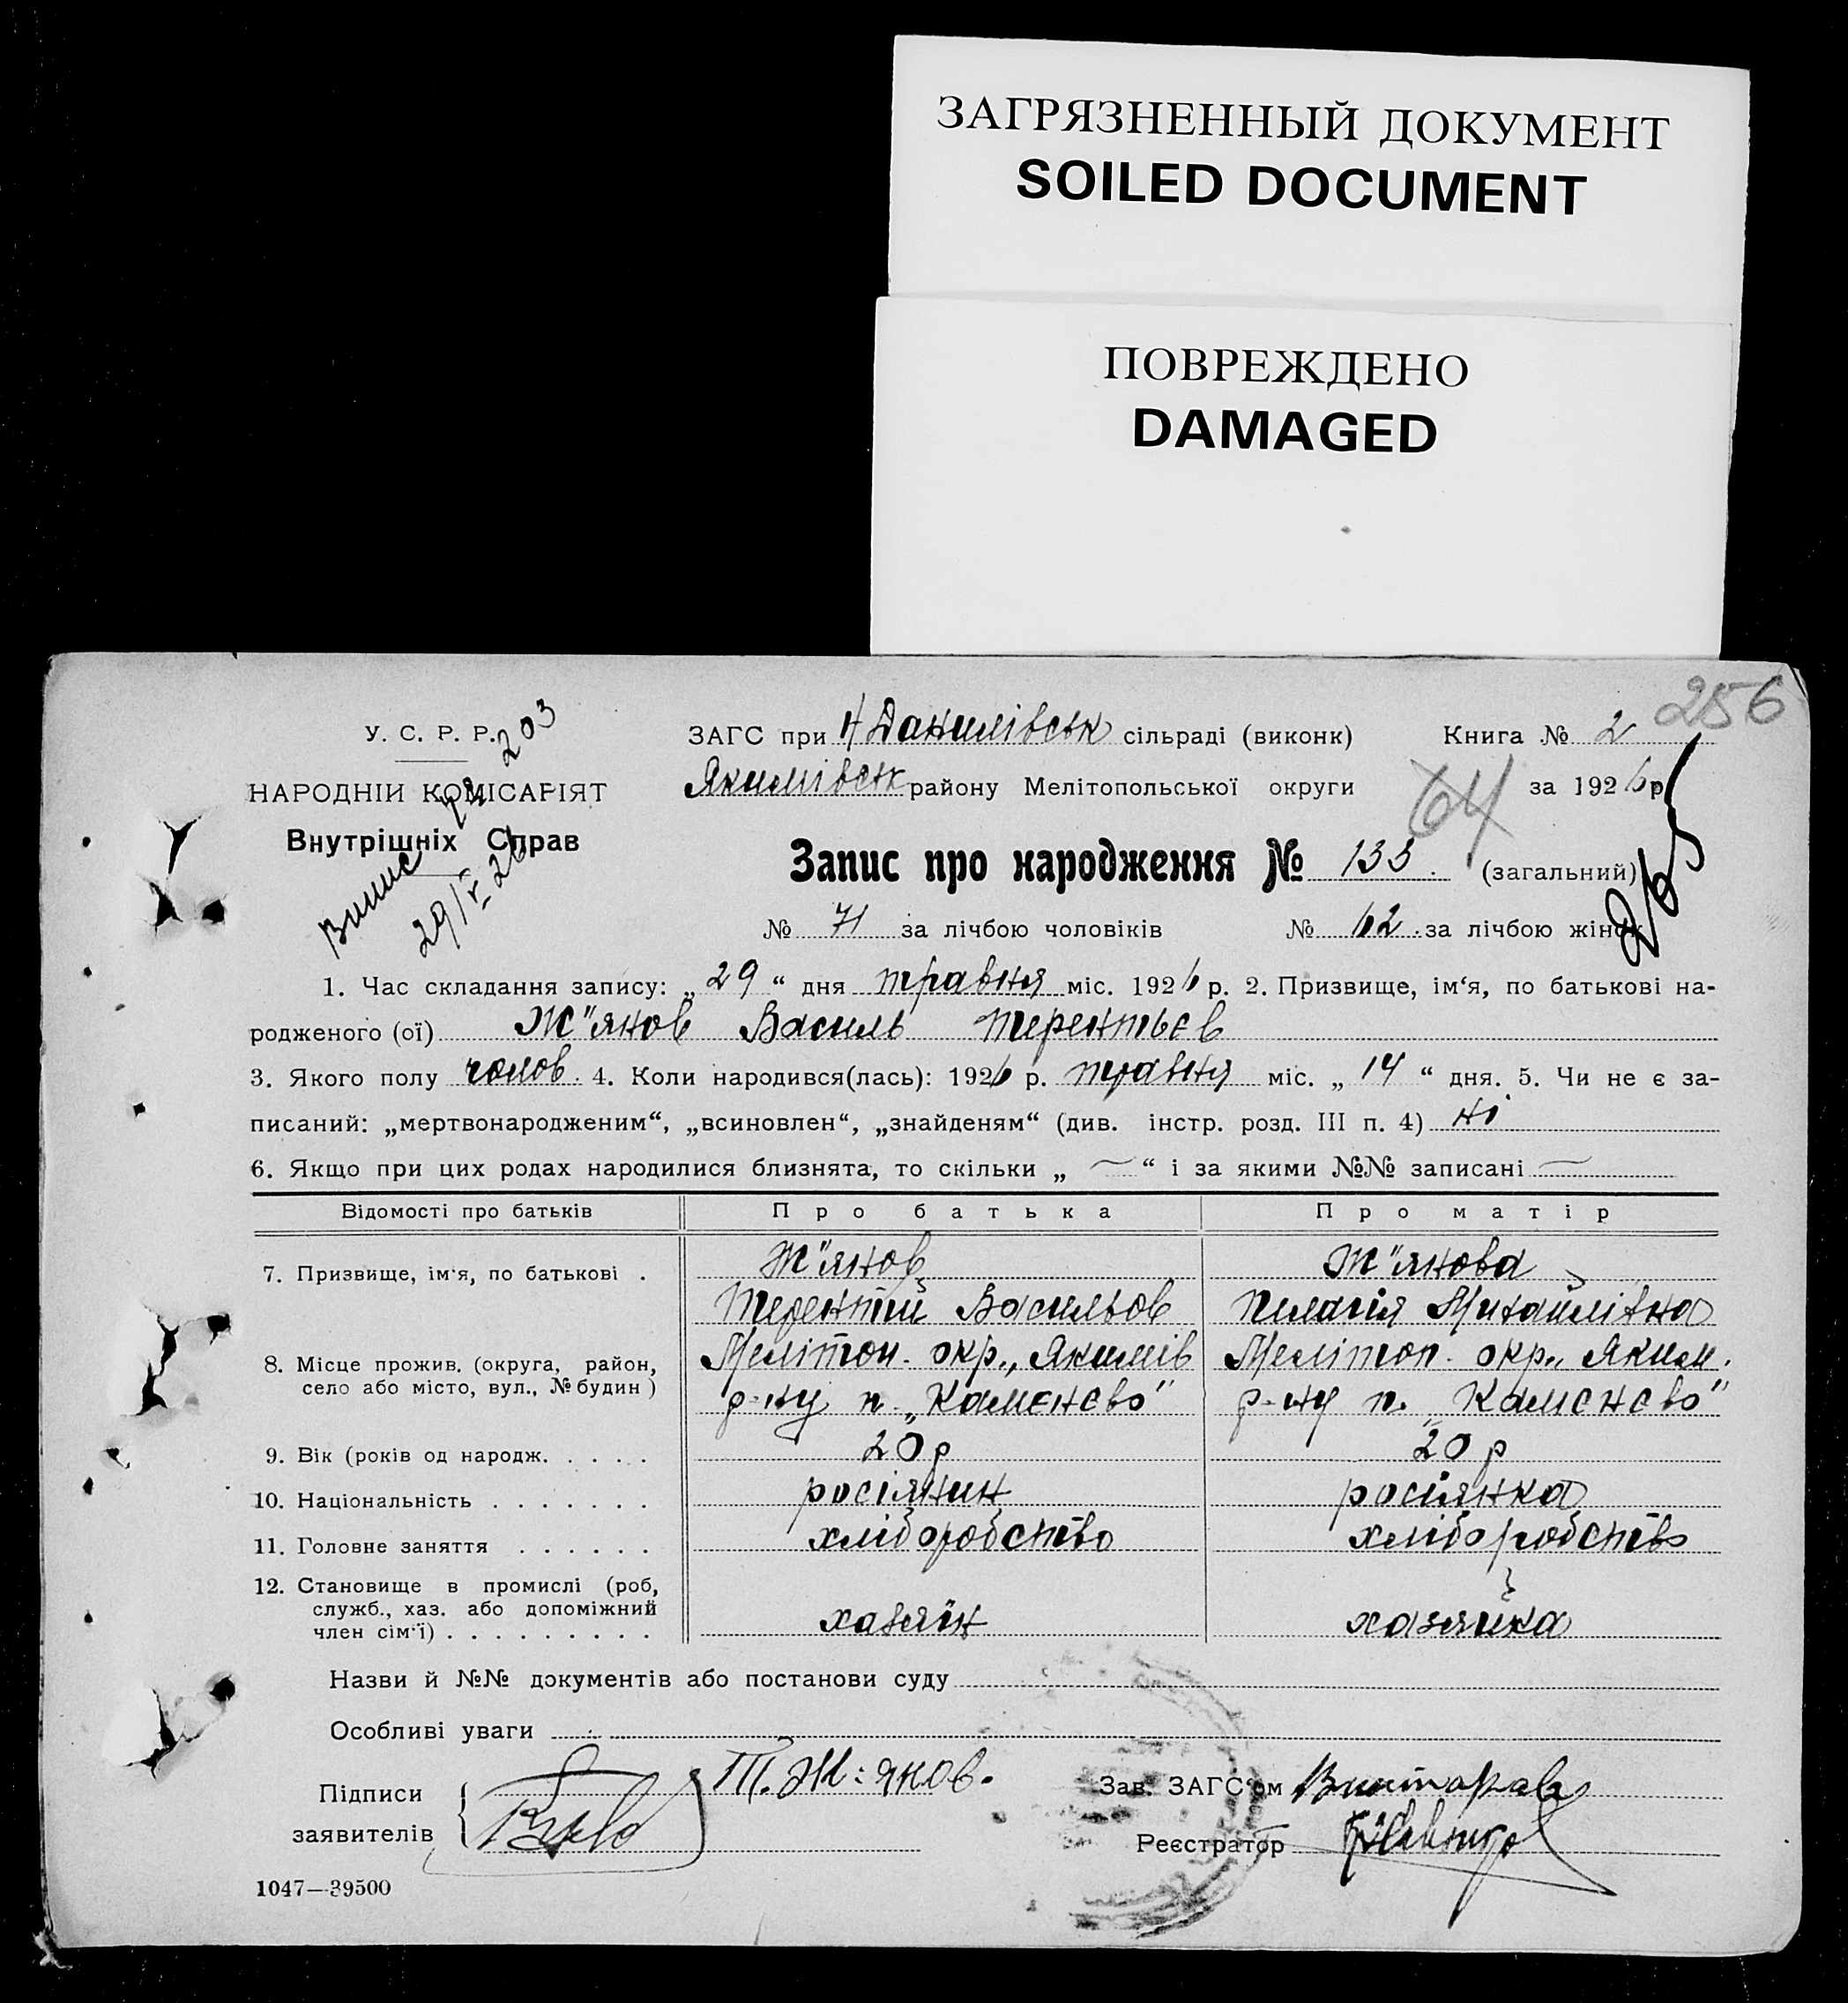 ЗАГРЯЗНЕННЫЙ ДОКУМЕНТ
SOILED DOCUMENT
ПОВРЕЖДЕНО
DAMAGED
256
У. С. Р. Р.
НАРОДНІЙ КОМІСАРІЯТ
Внутрішніх Справ
Випис № 203
29/V 26
ЗАГС при Н Данилівськ сільраді (виконк) Книга № 2
Якимівськ району Мелітопольської округи за 1926 р.
64
265
Запис про народження № 133. (загальний)
№ 71 за лічбою чоловіків № 62. за лічбою жінок
1. Час складання запису: „29“ дня травня міс. 1926 р. 2. Призвище, ім‘я, по батькові на-
родженого (ої) Ж"янов Василь Терентьєв
3. Якого полу чолов. 4. Коли народився(лась): 1926 р. травня міс. „14“ дня. 5. Чи не є за-
писаний: „мертвонародженим“, „всиновлен“, „знайденям“ (див. інстр. розд. III п. 4) ні
6. Якщо при цих родах народилися близнята, то скільки „ — “ і за якими №№ записані —
Відомості про батьків Про батька Про матір
7. Призвище, ім‘я, по батькові . Ж"янов Ж"янова
Терентій Васильов Пилагія Михайлівна
8. Місце прожив. (округа, район, село або місто, вул., № будин) Мелітоп. окр., Якимів Мелітоп. окр., Яким.
р-ну п. „Каменєво" р-ну п. „Каменєво"
9. Вік (років од народж. . . . . 20 р 20 р
10. Національність . . . . . . . росіянин росіянка
11. Головне заняття . . . . . . хліборобство хліборобство
12. Становище в промислі (роб, служб., хаз. або допоміжний член сім‘ї) . . . . . . . . . хазяїн хазяйка
Назви й №№ документів або постанови суду
Особливі уваги
Підписи заявителів Т. Ж:янов.
Зав. ЗАГС‘ом
Реєстратор
1047—39500